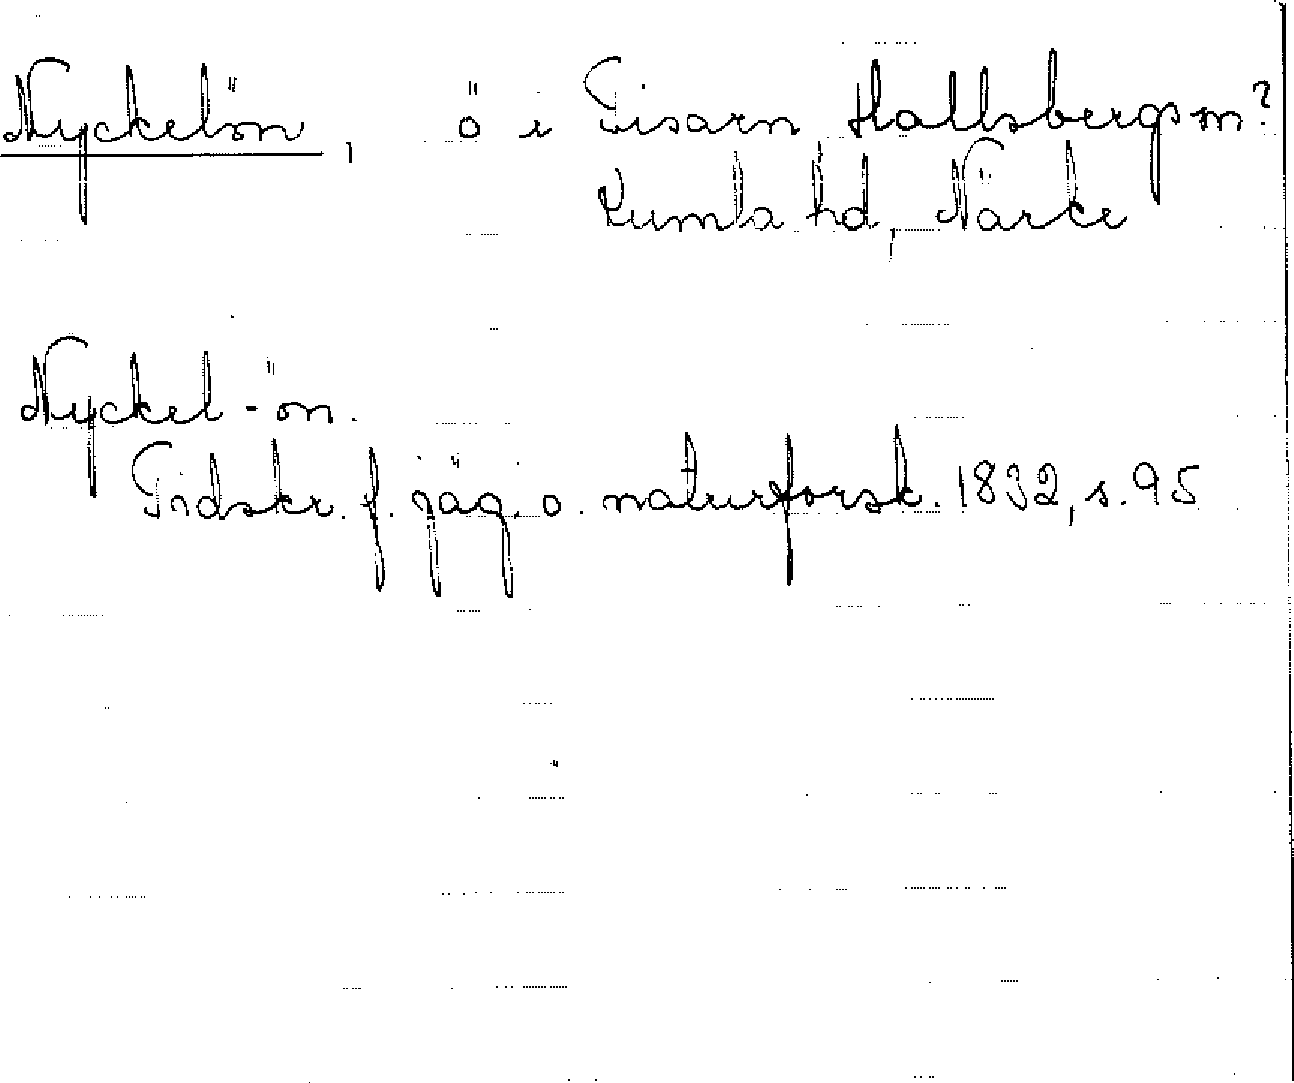 Nyckelön, ö i Tisarn Hallsbergs sn?
Kumla hd, Närke
Nyckel-ön.
Tidskr. f. jäg. o. naturforsk. 1832, s. 95